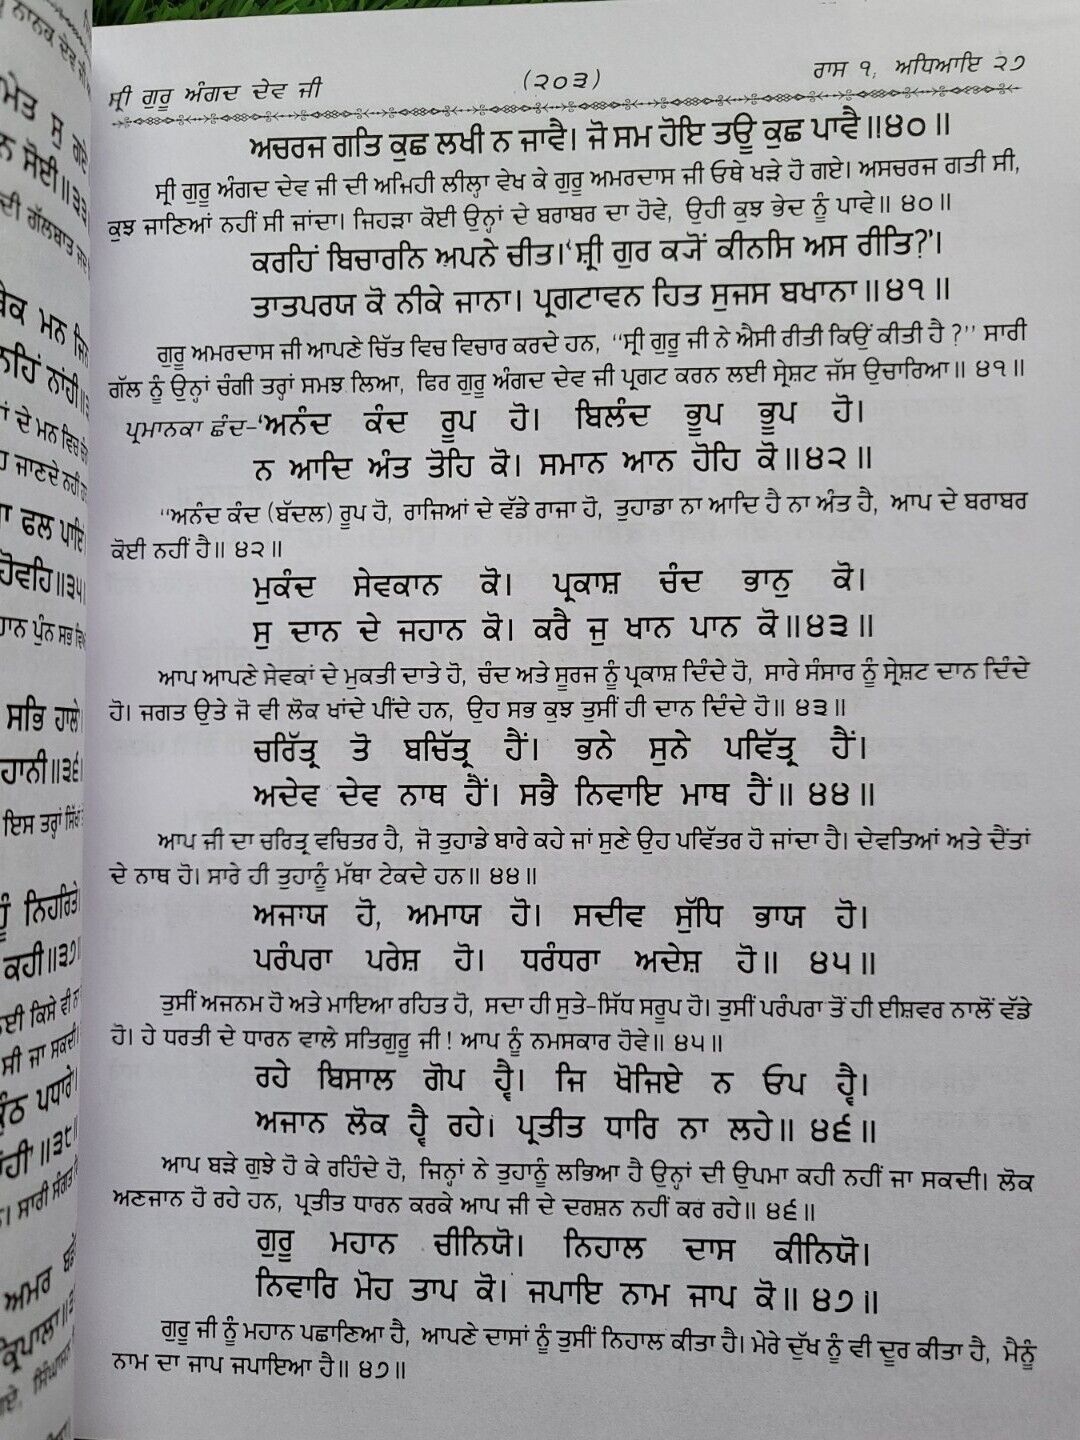 ਸ੍ਰੀ ਗੁਰੂ ਅੰਗਦ ਦੇਵ ਜੀ (੨੦੩) ਰਾਸ ੧, ਅਧਿਆਇ ੨੭
ਅਚਰਜ ਗਤਿ ਕੁਛ ਲਖੀ ਨ ਜਾਵੈ। ਜੋ ਸਮ ਹੋਇ ਤਊ ਕੁਛ ਪਾਵੈ॥੪੦॥
ਸ੍ਰੀ ਗੁਰੂ ਅੰਗਦ ਦੇਵ ਜੀ ਦੀ ਅਜਿਹੀ ਲੀਲ੍ਹਾ ਵੇਖ ਕੇ ਗੁਰੂ ਅਮਰਦਾਸ ਜੀ ਓਥੇ ਖੜੇ ਹੋ ਗਏ। ਅਸਚਰਜ ਗਤੀ ਸੀ,
ਕੁਝ ਜਾਣਿਆਂ ਨਹੀਂ ਸੀ ਜਾਂਦਾ। ਜਿਹੜਾ ਕੋਈ ਉਨ੍ਹਾਂ ਦੇ ਬਰਾਬਰ ਦਾ ਹੋਵੇ, ਉਹੀ ਕੁਝ ਭੇਦ ਨੂੰ ਪਾਵੇ॥ ੪੦॥
ਕਰਹਿਂ ਬਿਚਾਰਨਿ ਅਪਨੇ ਚੀਤ।‘ਸ਼੍ਰੀ ਗੁਰ ਕਯੋਂ ਕੀਨਸਿ ਅਸ ਰੀਤਿ?’।
ਤਾਤਪਰਯ ਕੋ ਨੀਕੇ ਜਾਨਾ। ਪ੍ਰਗਟਾਵਨ ਹਿਤ ਸੁਜਸ ਬਖਾਨਾ॥੪੧॥
ਗੁਰੂ ਅਮਰਦਾਸ ਜੀ ਆਪਣੇ ਚਿੱਤ ਵਿਚ ਵਿਚਾਰ ਕਰਦੇ ਹਨ, “ਸ੍ਰੀ ਗੁਰੂ ਜੀ ਨੇ ਐਸੀ ਰੀਤੀ ਕਿਉਂ ਕੀਤੀ ਹੈ ?” ਸਾਰੀ
ਗੱਲ ਨੂੰ ਉਨ੍ਹਾਂ ਚੰਗੀ ਤਰ੍ਹਾਂ ਸਮਝ ਲਿਆ, ਫਿਰ ਗੁਰੂ ਅੰਗਦ ਦੇਵ ਜੀ ਪ੍ਰਗਟ ਕਰਨ ਲਈ ਸ੍ਰੇਸ਼ਟ ਜੱਸ ਉਚਾਰਿਆ॥ ੪੧॥
ਪ੍ਰਮਾਨਕਾ ਛੰਦ-‘ਅਨੰਦ ਕੰਦ ਰੂਪ ਹੋ। ਬਿਲੰਦ ਭੂਪ ਭੂਪ ਹੋ।
ਨ ਆਦਿ ਅੰਤ ਤੋਹਿ ਕੋ। ਸਮਾਨ ਆਨ ਹੋਹਿ ਕੋ॥੪੨॥
“ਅਨੰਦ ਕੰਦ (ਬੱਦਲ) ਰੂਪ ਹੋ, ਰਾਜਿਆਂ ਦੇ ਵੱਡੇ ਰਾਜਾ ਹੋ, ਤੁਹਾਡਾ ਨਾ ਆਦਿ ਹੈ ਨਾ ਅੰਤ ਹੈ, ਆਪ ਦੇ ਬਰਾਬਰ
ਕੋਈ ਨਹੀਂ ਹੈ॥ ੪੨॥
ਮੁਕੰਦ ਸੇਵਕਾਨ ਕੋ। ਪ੍ਰਕਾਸ਼ ਚੰਦ ਭਾਨੁ ਕੋ।
ਸੁ ਦਾਨ ਦੇ ਜਹਾਨ ਕੋ। ਕਰੈ ਜੁ ਖਾਨ ਪਾਨ ਕੋ॥੪੩॥
ਆਪ ਆਪਣੇ ਸੇਵਕਾਂ ਦੇ ਮੁਕਤੀ ਦਾਤੇ ਹੋ, ਚੰਦ ਅਤੇ ਸੂਰਜ ਨੂੰ ਪ੍ਰਕਾਸ਼ ਦਿੰਦੇ ਹੋ, ਸਾਰੇ ਸੰਸਾਰ ਨੂੰ ਸ੍ਰੇਸ਼ਟ ਦਾਨ ਦਿੰਦੇ
ਹੋ। ਜਗਤ ਉਤੇ ਜੋ ਵੀ ਲੋਕ ਖਾਂਦੇ ਪੀਂਦੇ ਹਨ, ਉਹ ਸਭ ਕੁਝ ਤੁਸੀਂ ਹੀ ਦਾਨ ਦਿੰਦੇ ਹੋ॥ ੪੩॥
ਚਰਿੱਤ੍ਰ ਤੋ ਬਚਿੱਤ੍ਰ ਹੈਂ। ਭਨੇ ਸੁਨੇ ਪਵਿੱਤ੍ਰ ਹੈਂ।
ਅਦੇਵ ਦੇਵ ਨਾਥ ਹੈਂ। ਸਭੈ ਨਿਵਾਇ ਮਾਥ ਹੈਂ॥ ੪੪॥
ਆਪ ਜੀ ਦਾ ਚਰਿਤ੍ਰ ਵਚਿਤਰ ਹੈ, ਜੋ ਤੁਹਾਡੇ ਬਾਰੇ ਕਹੇ ਜਾਂ ਸੁਣੇ ਉਹ ਪਵਿੱਤਰ ਹੋ ਜਾਂਦਾ ਹੈ। ਦੇਵਤਿਆਂ ਅਤੇ ਦੈਂਤਾਂ
ਦੇ ਨਾਥ ਹੋ। ਸਾਰੇ ਹੀ ਤੁਹਾਨੂੰ ਮੱਥਾ ਟੇਕਦੇ ਹਨ॥ ੪੪॥
ਅਜਾਯ ਹੋ, ਅਮਾਯ ਹੋ। ਸਦੀਵ ਸੁੱਧਿ ਭਾਯ ਹੋ।
ਪਰੰਪਰਾ ਪਰੇਸ਼ ਹੋ। ਧਰੰਧਰਾ ਅਦੇਸ਼ ਹੋ॥ ੪੫॥
ਤੁਸੀਂ ਅਜਨਮ ਹੋ ਅਤੇ ਮਾਇਆ ਰਹਿਤ ਹੋ, ਸਦਾ ਹੀ ਸੁਤੇ-ਸਿੱਧ ਸਰੂਪ ਹੋ। ਤੁਸੀਂ ਪਰੰਪਰਾ ਤੋਂ ਹੀ ਈਸ਼ਵਰ ਨਾਲੋਂ ਵੱਡੇ
ਹੋ। ਹੇ ਧਰਤੀ ਦੇ ਧਾਰਨ ਵਾਲੇ ਸਤਿਗੁਰੂ ਜੀ ! ਆਪ ਨੂੰ ਨਮਸਕਾਰ ਹੋਵੇ॥ ੪੫॥
ਰਹੇ ਬਿਸਾਲ ਗੋਪ ਹ੍ਵੈ। ਜਿ ਖੋਜਿਏ ਨ ਓਪ ਹ੍ਵੈ।
ਅਜਾਨ ਲੋਕ ਹ੍ਵੈ ਰਹੇ। ਪ੍ਰਤੀਤ ਧਾਰਿ ਨਾ ਲਹੇ॥ ੪੬॥
ਆਪ ਬੜੇ ਗੁਝੇ ਹੋ ਕੇ ਰਹਿੰਦੇ ਹੋ, ਜਿਨ੍ਹਾਂ ਨੇ ਤੁਹਾਨੂੰ ਲਭਿਆ ਹੈ ਉਨ੍ਹਾਂ ਦੀ ਉਪਮਾ ਕਹੀ ਨਹੀਂ ਜਾ ਸਕਦੀ। ਲੋਕ
ਅਣਜਾਨ ਹੋ ਰਹੇ ਹਨ, ਪ੍ਰਤੀਤ ਧਾਰਨ ਕਰਕੇ ਆਪ ਜੀ ਦੇ ਦਰਸ਼ਨ ਨਹੀਂ ਕਰ ਰਹੇ॥ ੪੬॥
ਗੁਰੂ ਮਹਾਨ ਚੀਨਿਯੋ। ਨਿਹਾਲ ਦਾਸ ਕੀਨਿਯੋ।
ਨਿਵਾਰਿ ਮੋਹ ਤਾਪ ਕੋ। ਜਪਾਇ ਨਾਮ ਜਾਪ ਕੋ॥ ੪੭॥
ਗੁਰੂ ਜੀ ਨੂੰ ਮਹਾਨ ਪਛਾਣਿਆ ਹੈ, ਆਪਣੇ ਦਾਸਾਂ ਨੂੰ ਤੁਸੀਂ ਨਿਹਾਲ ਕੀਤਾ ਹੈ। ਮੇਰੇ ਦੁੱਖ ਨੂੰ ਵੀ ਦੂਰ ਕੀਤਾ ਹੈ, ਮੈਨੂੰ
ਨਾਮ ਦਾ ਜਾਪ ਜਪਾਇਆ ਹੈ॥ ੪੭॥